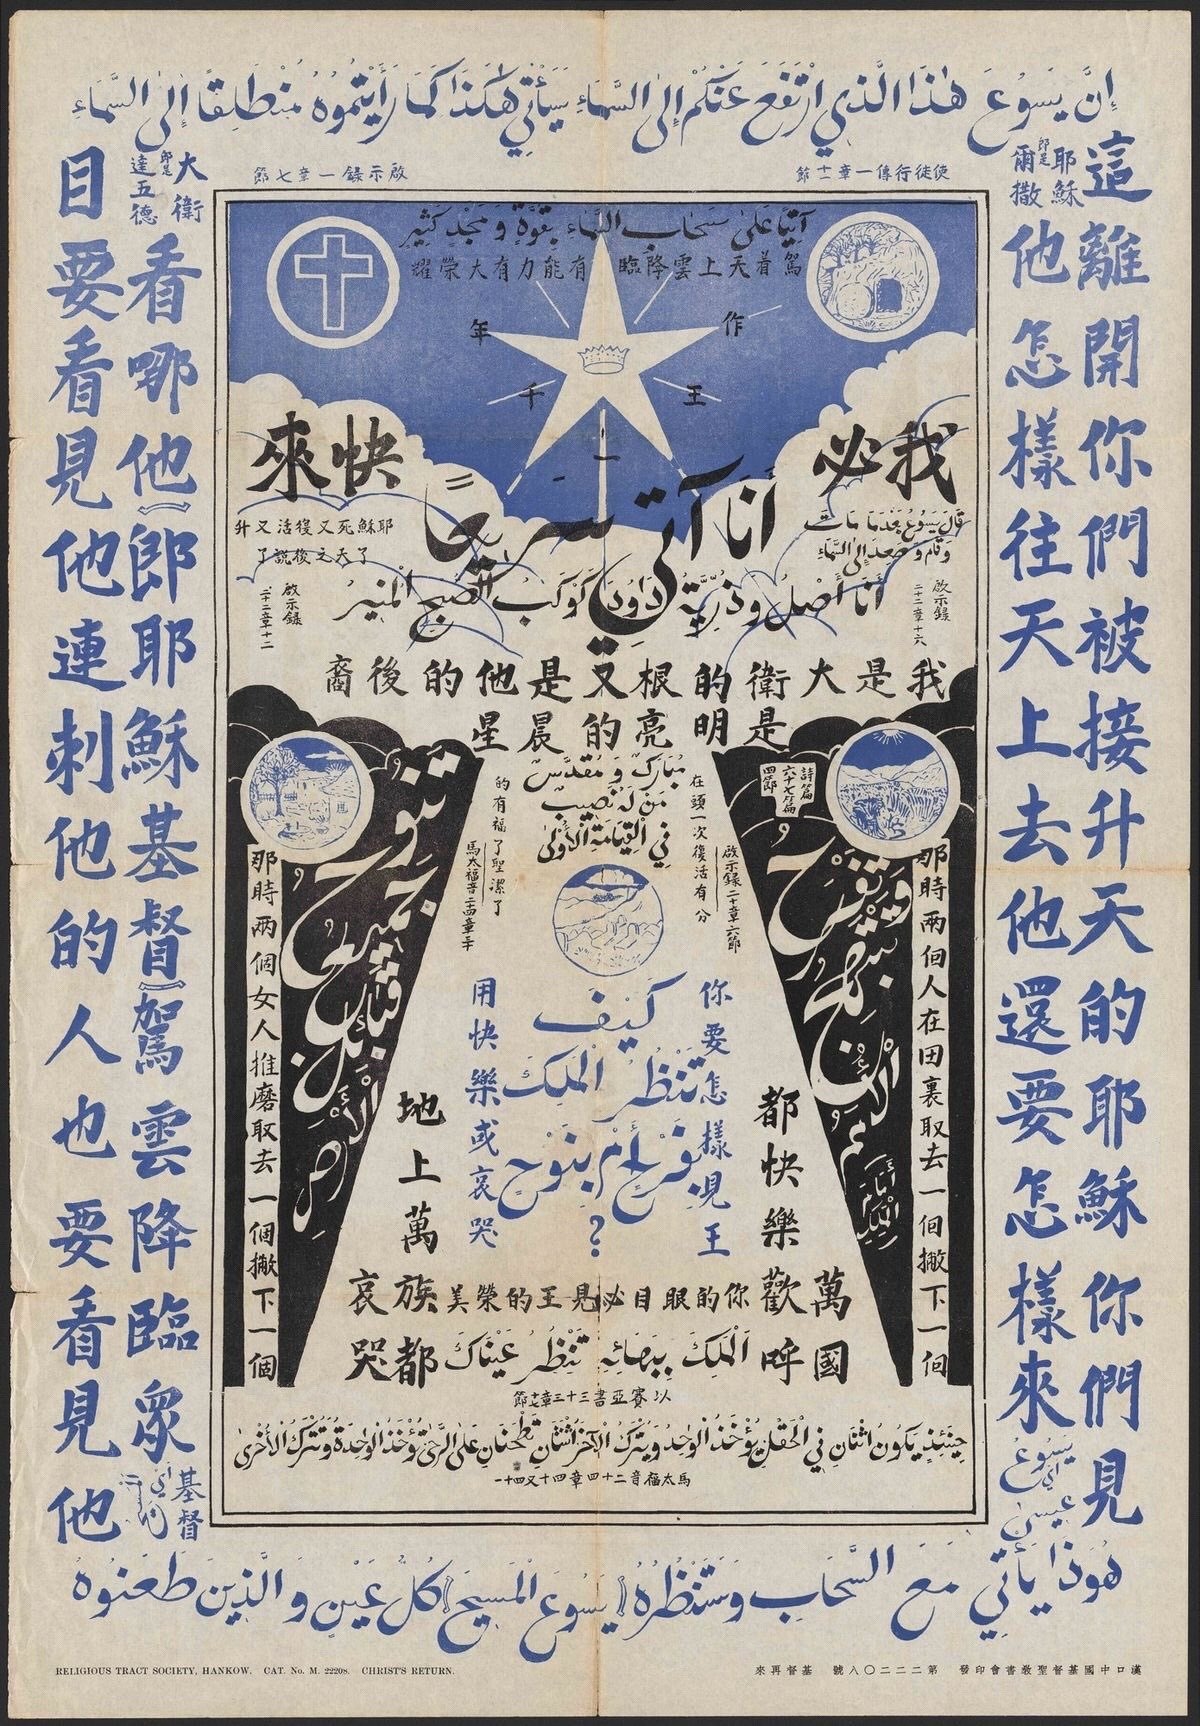 إِنَّ يَسُوعَ هٰذَا الَّذِي ارْتَفَعَ عَنْكُمْ إِلَى السَّمَاءِ سَيَأْتِي هٰكَذَا كَمَا رَأَيْتُمُوهُ مُنْطَلِقًا إِلَى السَّمَاءِ
使徒行傳一章十一節
啟示錄一章七節
這離開你們被接升天的耶穌你們見
耶穌即是爾撒
他怎樣往天上去他還要怎樣來
يَسُوعَ
اي
عِيسَىٰ
大衛即是達五德
看哪他〖即耶穌基督〗駕雲降臨眾
基督
目要看見他連刺他的人也要看見他
آتِيًا عَلَىٰ سَحَابِ السَّمَاءِ بِقُوَّةٍ وَ مَجْدٍ كَثِيرٍ
駕着天上雲降臨有能力有大榮耀
作王一千年
我必快來
أَنَا آتِي سَرِيعًا
قَالَ يَسُوعُ بَعْدَمَا مَاتَ
وَقَامَ وَصَعِدَ إِلَى السَّمَاءِ
耶穌死又復活又升
了天之後說了
啟示錄二十二章十六
啟示錄二十二章十二
أَنَا أَصْلُ وَذُرِّيَّةُ دَاوُدَ كَوْكَبُ الصُّبْحِ الْمُنِيرُ
我是大衛的根又是他的後裔
是明亮的晨星
مُبَارَكٌ وَ مُقَدَّسٌ
مَنْ لَهُ نَصِيبٌ
فِي الْقِيَامَةِ الْأُولَىٰ
在頭一次復活有分
的有福了聖潔了
啟示錄二十章六節
馬太福音二四章三十
詩篇六十七篇四節
وَتَفْرَحُ
تَنُوحُ جَمِيعُ قَبَائِلِ الْأَرْضِ
那時兩個人在田裏取去一個撇下一個
那時兩個女人推磨取去一個撇下一個
كَيْفَ
تَنْظُرُ الْمَلِكَ
بِفَرَحٍ أَمْ بِنَوْحٍ
؟
你要怎樣見王
用快樂或哀哭
萬國都快樂歡呼
地上萬族都哀哭
你的眼目必見王的榮美
الْمَلِكَ بِبَهَائِهِ تَنْظُرُ عَيْنَاكَ
以賽亞書三十三章十七節
حِينَئِذٍ يَكُونُ اثْنَانِ فِي الْحَقْلِ يُؤْخَذُ الْوَاحِدُ وَيُتْرَكُ الْآخَرُ اثْنَتَانِ تَطْحَنَانِ عَلَى الرَّحَىٰ تُؤْخَذُ الْوَاحِدَةُ وَتُتْرَكُ الْأُخْرَىٰ
馬太福音二十四章四十又四十一
هُوَذَا يَأْتِي مَعَ السَّحَابِ وَسَتَنْظُرُهُ〖يَسُوعَ الْمَسِيحَ〗كُلُّ عَيْنٍ وَ الَّذِينَ طَعَنُوهُ
RELIGIOUS TRACT SOCIETY, HANKOW. CAT. No. M. 22208. CHRIST'S RETURN.
漢口中國基督聖教書會印發 第二二二〇八號 基督再來